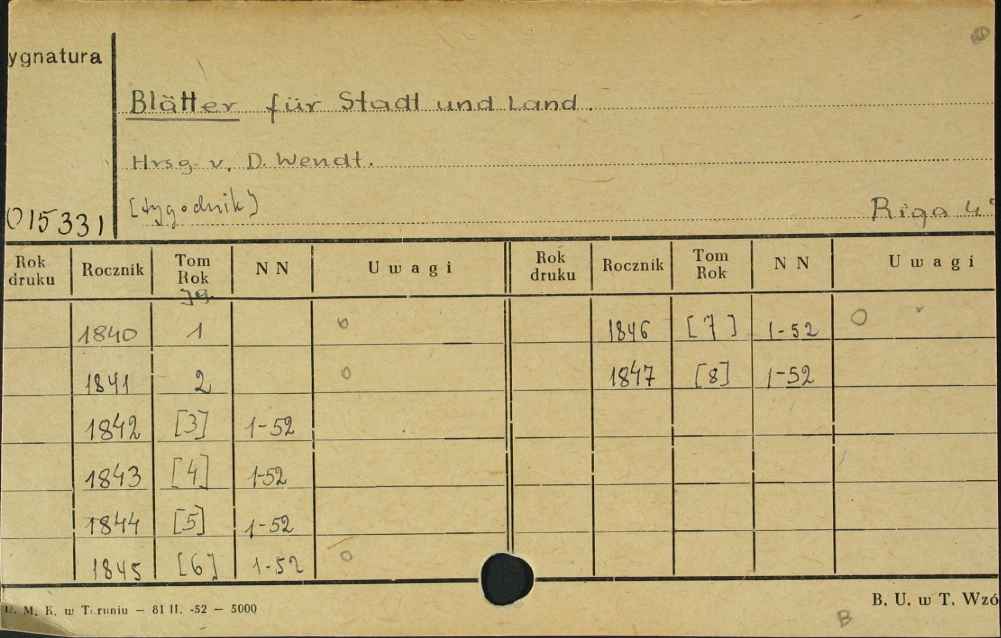 ygnatura
Blätter für Stadt und Land.
Hrsg. v. D. Wendt.
[tygodnik]
015331
Riga 4°
Rok druku Rocznik Tom Rok NN Uwagi Rok druku Rocznik Tom Rok NN Uwagi
Jg.
1840 1 o 1846 [7] 1-52 O
1841 2 o 1847 [8] 1-52
1842 [3] 1-52
1843 [4] 1-52
1844 [5] 1-52
1845 [6] 1-52 o
M. K. w Toruniu — 81 II. -52 — 5000
B. U. w T. Wzó
B